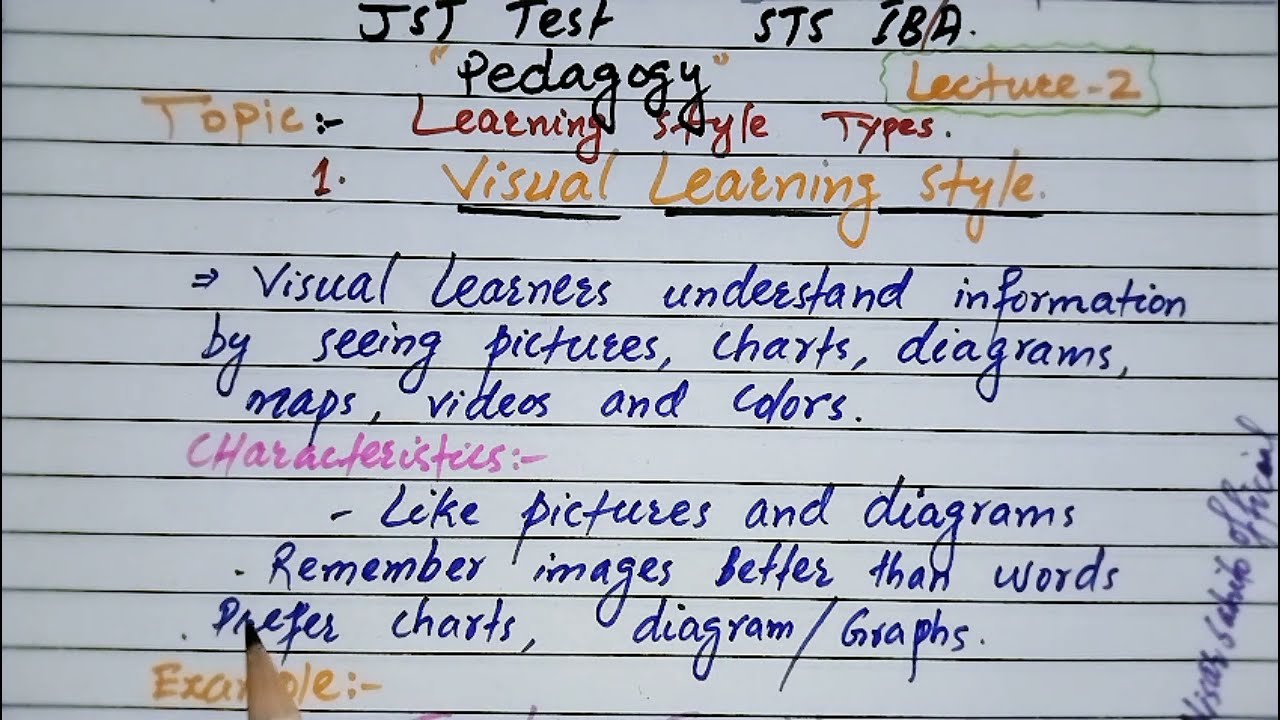 JST Test STS IBA.
"Pedagogy"
Lecture-2
Topic:- Learning style Types.
1. Visual Learning style.
⇒ Visual learners understand information
by seeing pictures, charts, diagrams,
maps, videos and colors.
CHaracteristics:-
- Like pictures and diagrams
. Remember images better than words
. Prefer charts, diagram/Graphs.
Example:-
Sahito official